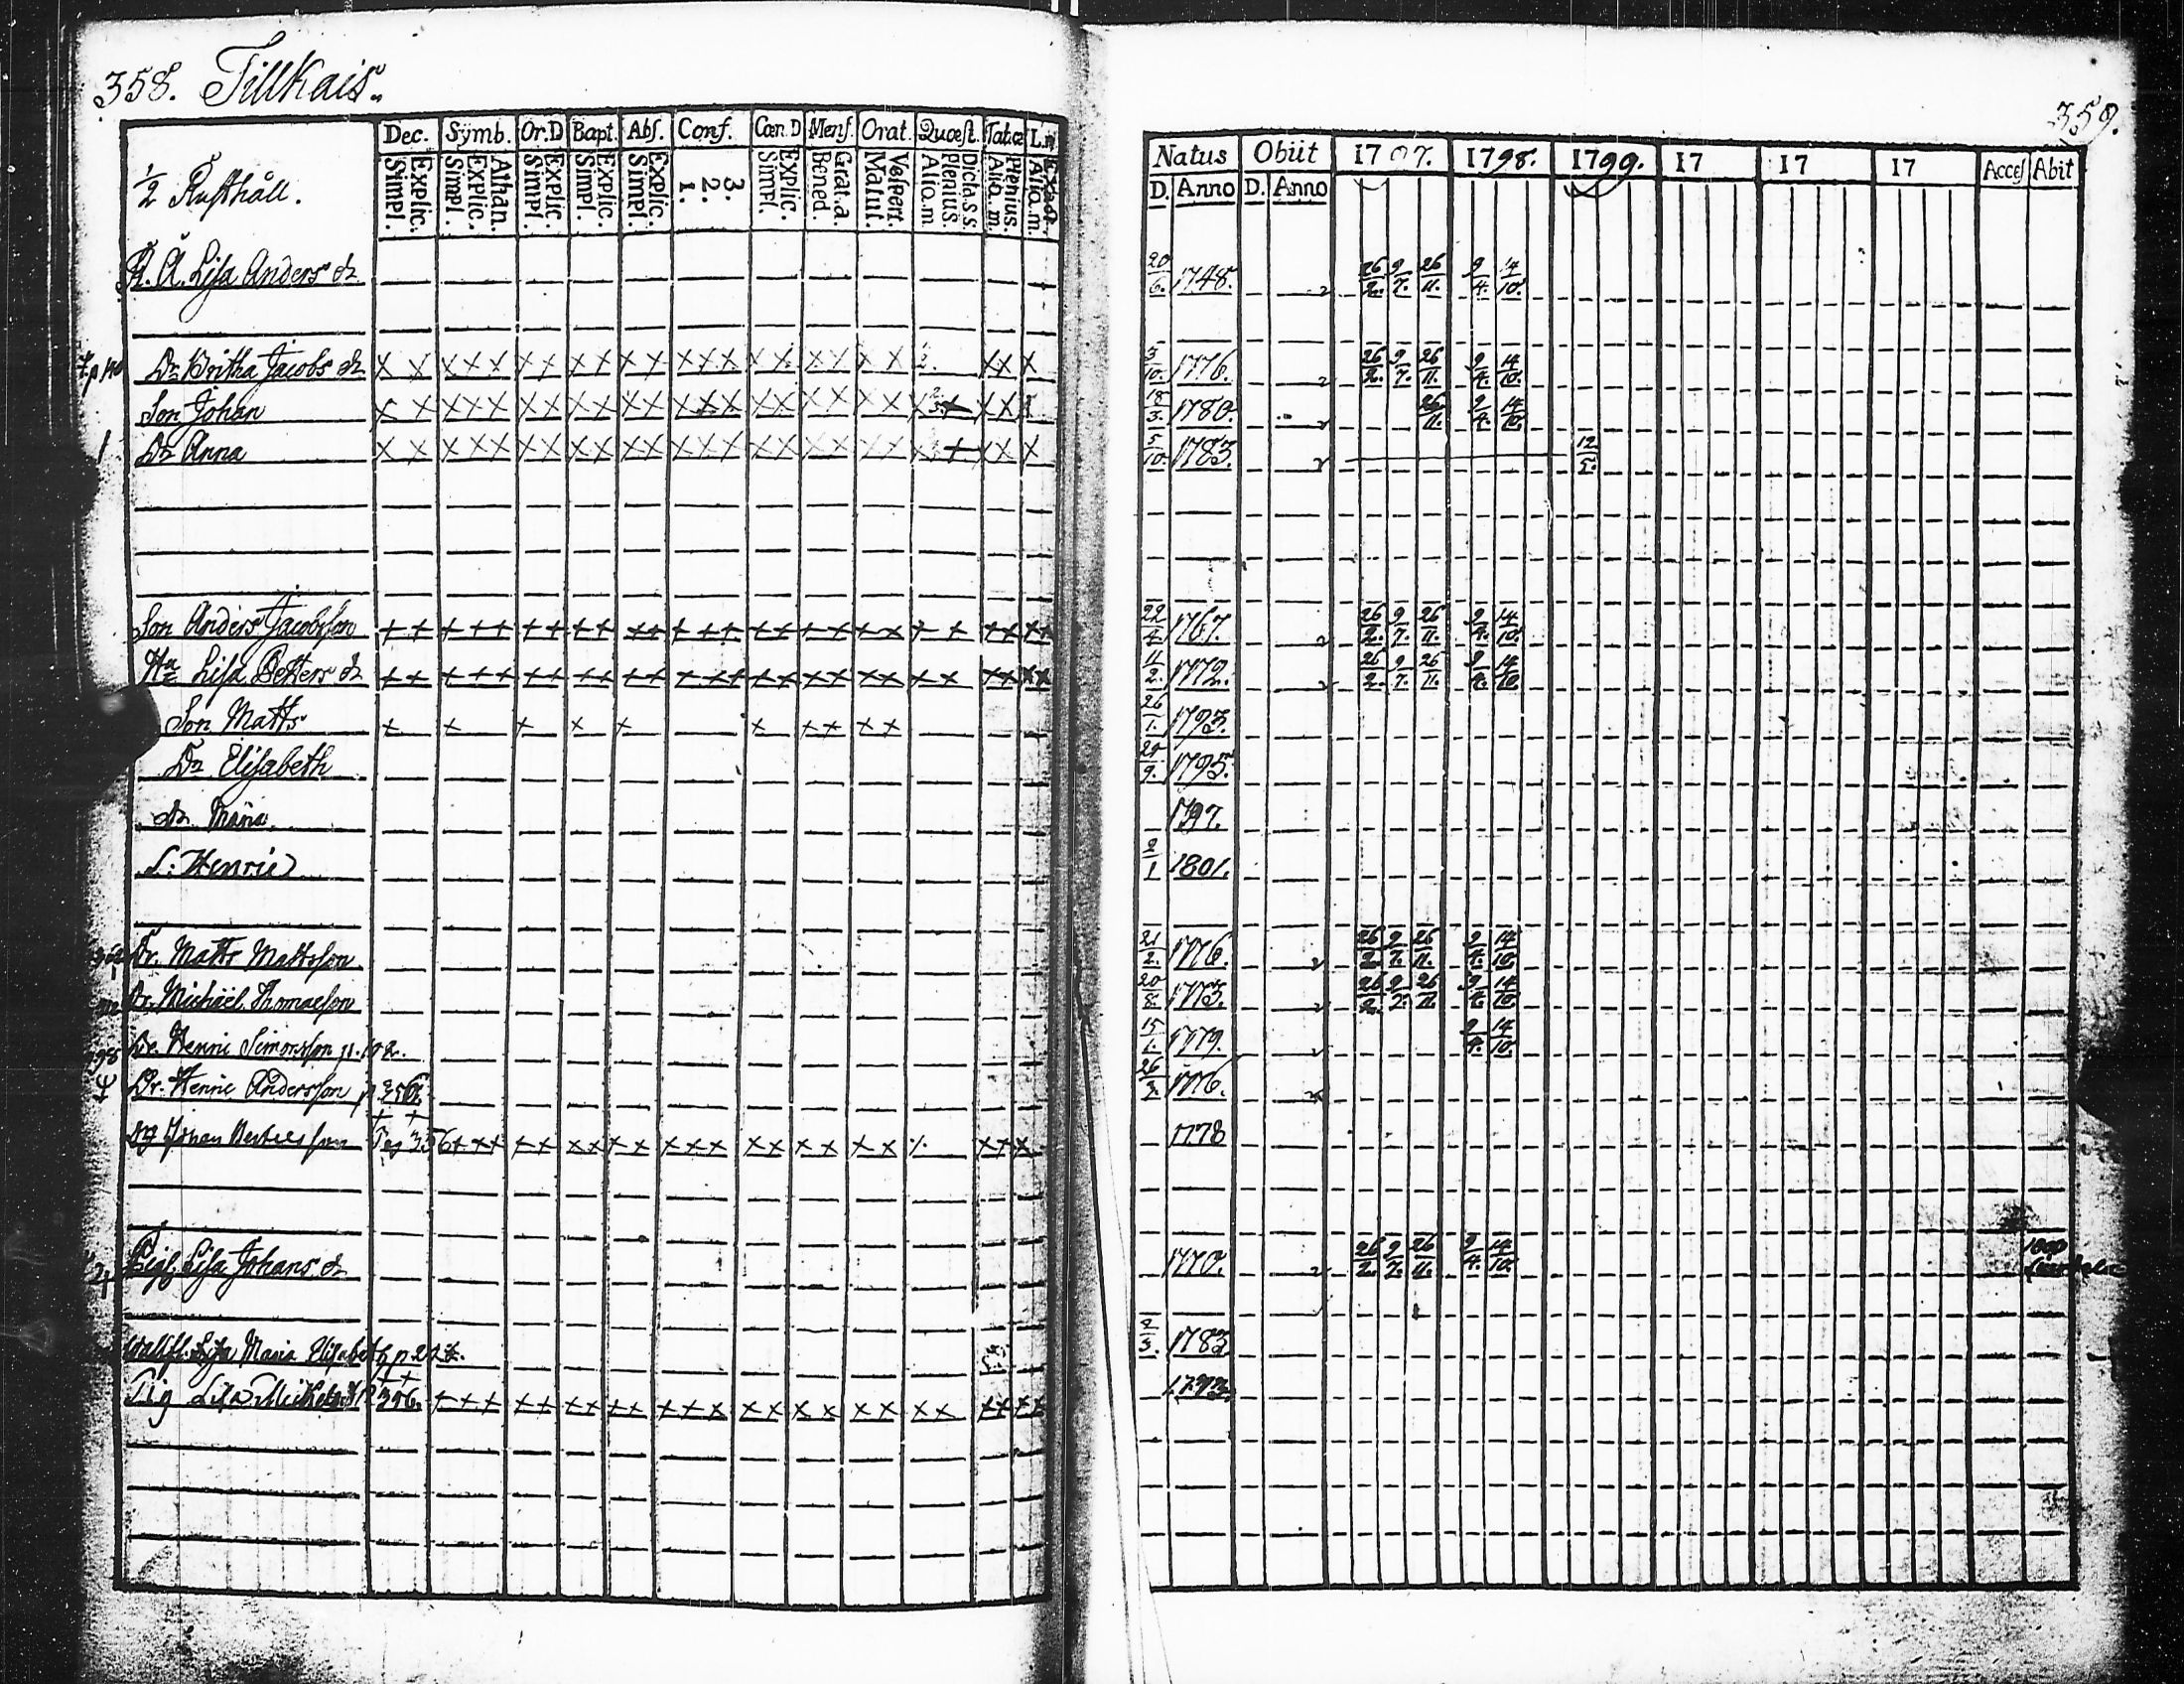 358. Tillkais.
Dec. Symb. Or.D Bapt. Abſ. Conf. Cœn.D Menſ. Orat. Quœſt. L.
Simpl. Explic. Simpl. Explic. Athan. Simpl. Explic Simpl. Explic. Simpl. Explic. 1. 2. 3. Simpl. Explic. Bened. Grat.a. Matut. Veſpert. Aliq.m Plenius. Dicta.s.s. Aliq.m. Plenius. Aliq.m.
½ Ruſthåll.
Liſa Anders dr
Dr Britha Jacobs dr
Son Johan
Dr Anna
Son Anders Jacobſson
Liſa Petters dr
Son Matts
Dr Eliſabeth
dr Maria
S. Henric
Dr. Matts Mattsſon
Dr. Michäel Thomaeſon
Dr. Henric Simonsſon p. 102.
Dr. Henric Andersſon p 356.
Johan Pag 356
Pig. Liſa Johans dr
Liſa Maria Eliſabeth p
Pig Liſa Mickels dr p 356.
359.
Natus Obiit 1797. 1798. 1799. 17 17 17 Acceſ Abit
D. Anno D. Anno
20/6. 1748. 26/2. 9/7. 26/11. 9/4. 14/10.
3/10. 1776. 26/2. 9/7. 26/11. 9/4. 14/10.
18/3. 1780. 26/11. 9/4. 14/10.
5/10. 1783. 12/5.
22/4. 1767. 26/2. 9/7. 26/11. 9/4. 14/10.
11/2. 1772. 26/2. 9/7. 26/11. 9/4. 14/10.
26/1. 1793.
1795.
1797.
2/1 1801.
21/2. 1776. 26/2. 9/7. 26/11. 9/4. 14/10.
20/8. 1773. 26/2. 9/7. 26/11. 9/4. 14/10.
15/1. 1779. 9/4. 14/10.
1776.
1778
1770. 26/2. 9/7. 26/11. 9/4. 14/10. 1800
2/3. 1783